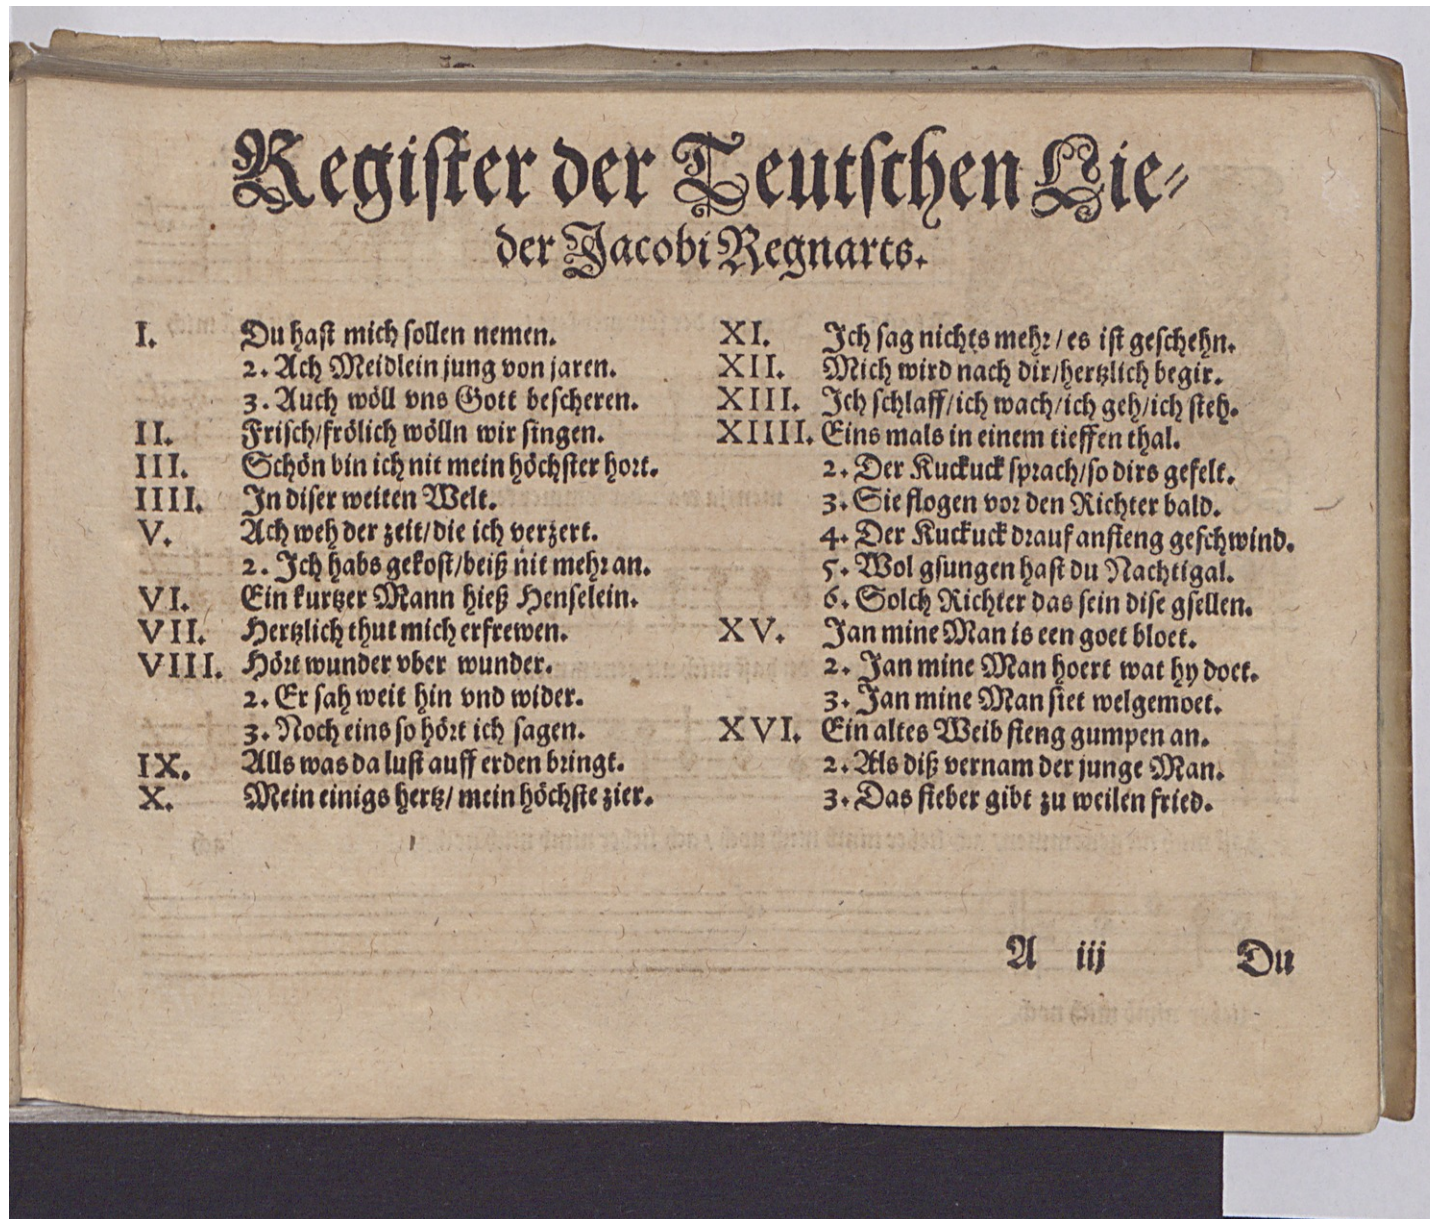 Register der Teutschen Lie-
der Jacobi Regnarts.
I. Du hast mich sollen nemen.
2. Ach Meidlein jung von jaren.
3. Auch wöll vns Gott bescheren.
II. Frisch/frölich wölln wir singen.
III. Schön bin ich nit mein höchster hort.
IIII. In diser weiten Welt.
V. Ach weh der zeit/die ich verzert.
2. Ich habs gekost/beiß nit mehr an.
VI. Ein kurtzer Mann hieß Henselein.
VII. Hertzlich thut mich erfrewen.
VIII. Hört wunder vber wunder.
2. Er sah weit hin vnd wider.
3. Noch eins so hört ich sagen.
IX. Alls was da lust auff erden bringt.
X. Mein einigs hertz/ mein höchste zier.
XI. Ich sag nichts mehr/es ist geschehn.
XII. Mich wird nach dir/hertzlich begir.
XIII. Ich schlaff/ich wach/ich geh/ich steh.
XIIII. Eins mals in einem tieffen thal.
2. Der Kuckuck sprach/so dirs gefelt.
3. Sie flogen vor den Richter bald.
4. Der Kuckuck drauf anfieng geschwind.
5. Wol gsungen hast du Nachtigal.
6. Solch Richter das sein dise gsellen.
XV. Jan mine Man is een goet bloet.
2. Jan mine Man hoert wat hy doet.
3. Jan mine Man siet welgemoet.
XVI. Ein altes Weib fieng gumpen an.
2. Als diß vernam der junge Man.
3. Das fieber gibt zu weilen fried.
A iij Du